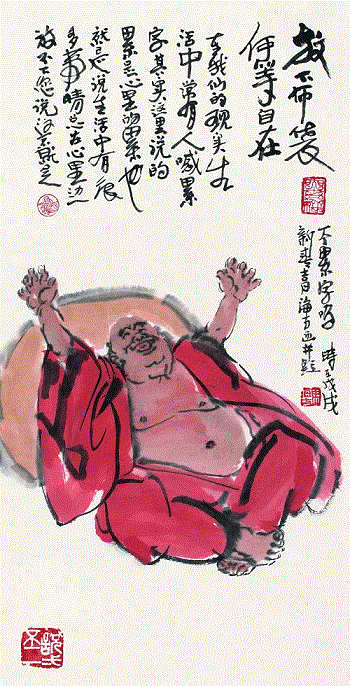 放下布袋
何等自在
在我们的现实生
活中常有人喊累
字其实这里说的
累是心里的累也
就是说生活中有很
多事情总在心里边
放不下您说这不就是
一个累字吗 时在戊戌
新春吉 海方画并题